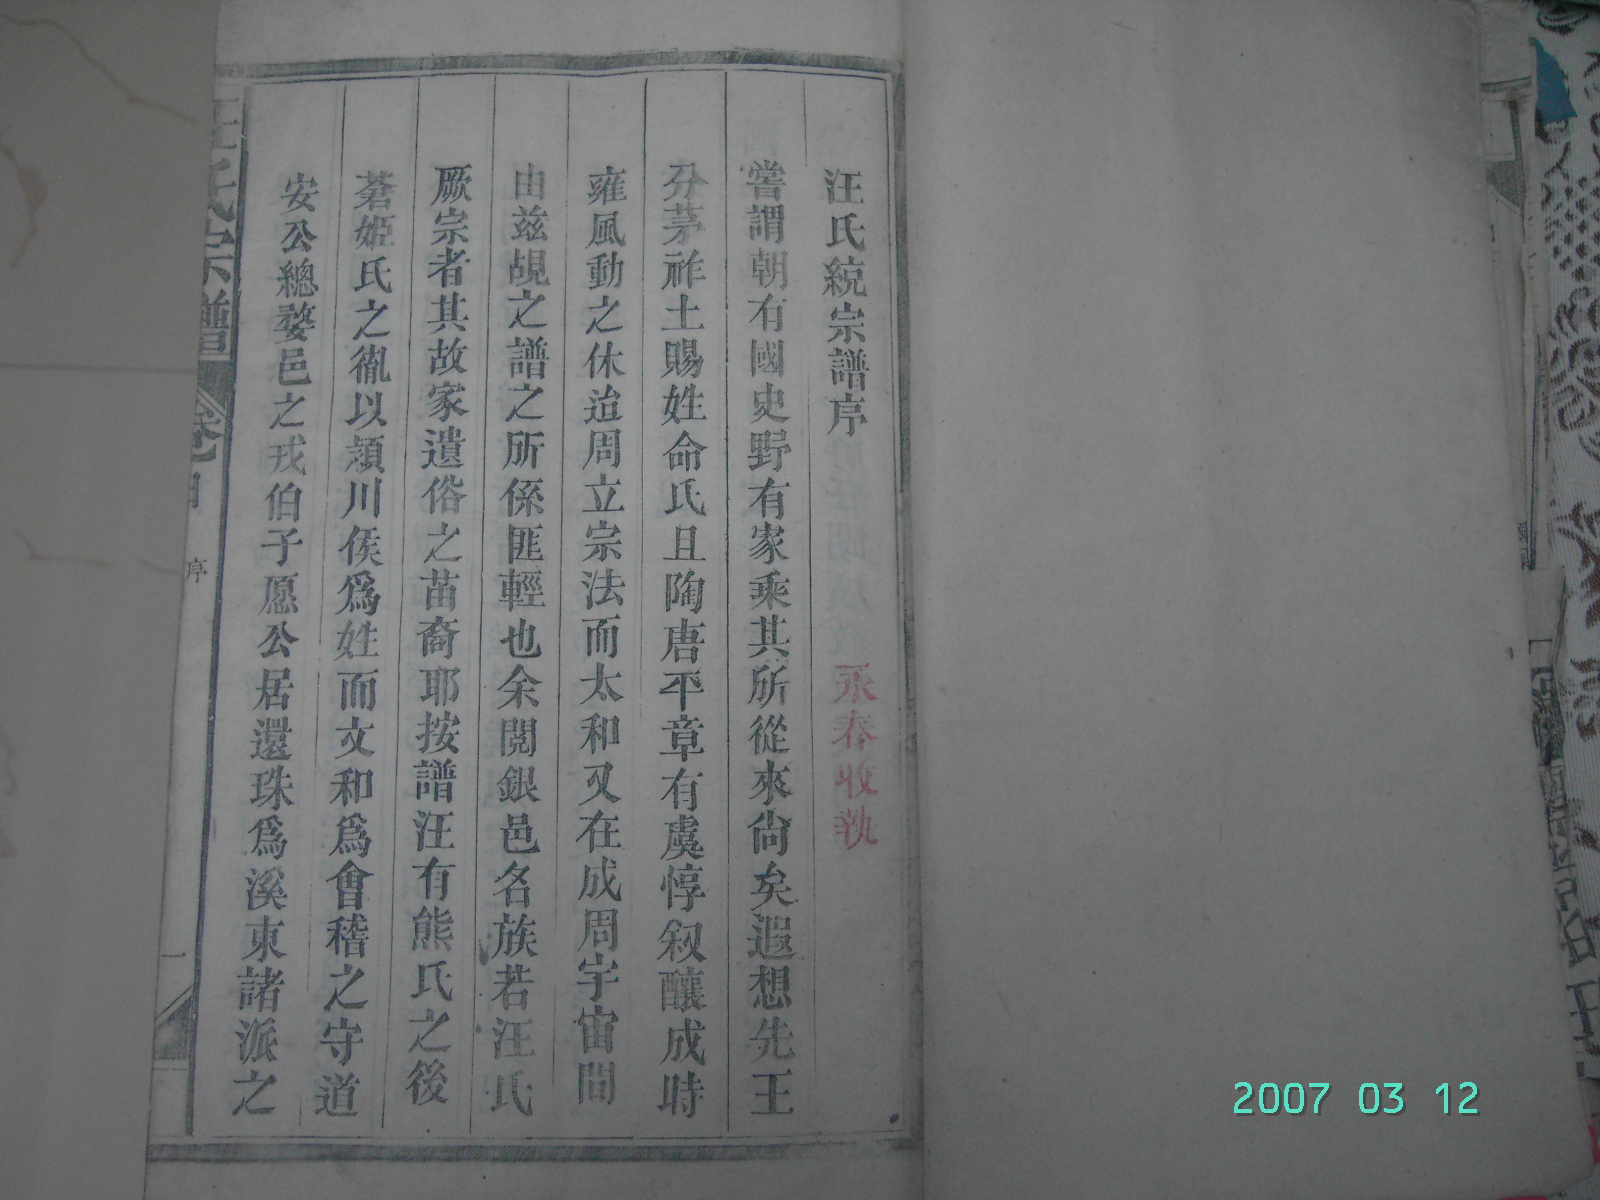 汪氏統宗譜序
永春收執
嘗謂朝有國史野有家乘其所從來尚矣遐想先王
分茅祚土賜姓命氏且陶唐平章有虞惇叙釀成時
雍風動之休迨周立宗法而太和又在成周宇宙間
由兹覘之譜之所係匪輕也余閱銀邑名族若汪氏
厥宗者其故家遺俗之苗裔耶按譜汪有熊氏之後
蒼姬氏之胤以潁川侯爲姓而文和爲會稽之守道
安公總婺邑之戎伯子愿公居還珠爲溪東諸派之
汪氏宗譜
序
一
2007 03 12